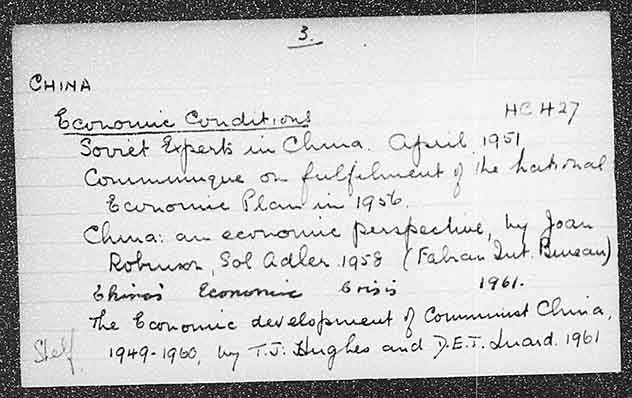 3.
CHINA
Economic Conditions HC 427
Soviet Experts in China. April 1951
Communique on fulfilment of the national
Economic Plan in 1956.
China: an economic perspective, by Joan
Robinson, Sol Adler 1958 (Fabian Int. Bureau)
China's Economic Crisis 1961.
The Economic development of Communist China,
Shelf 1949-1960, by T.J. Hughes and D.E.T. Luard. 1961